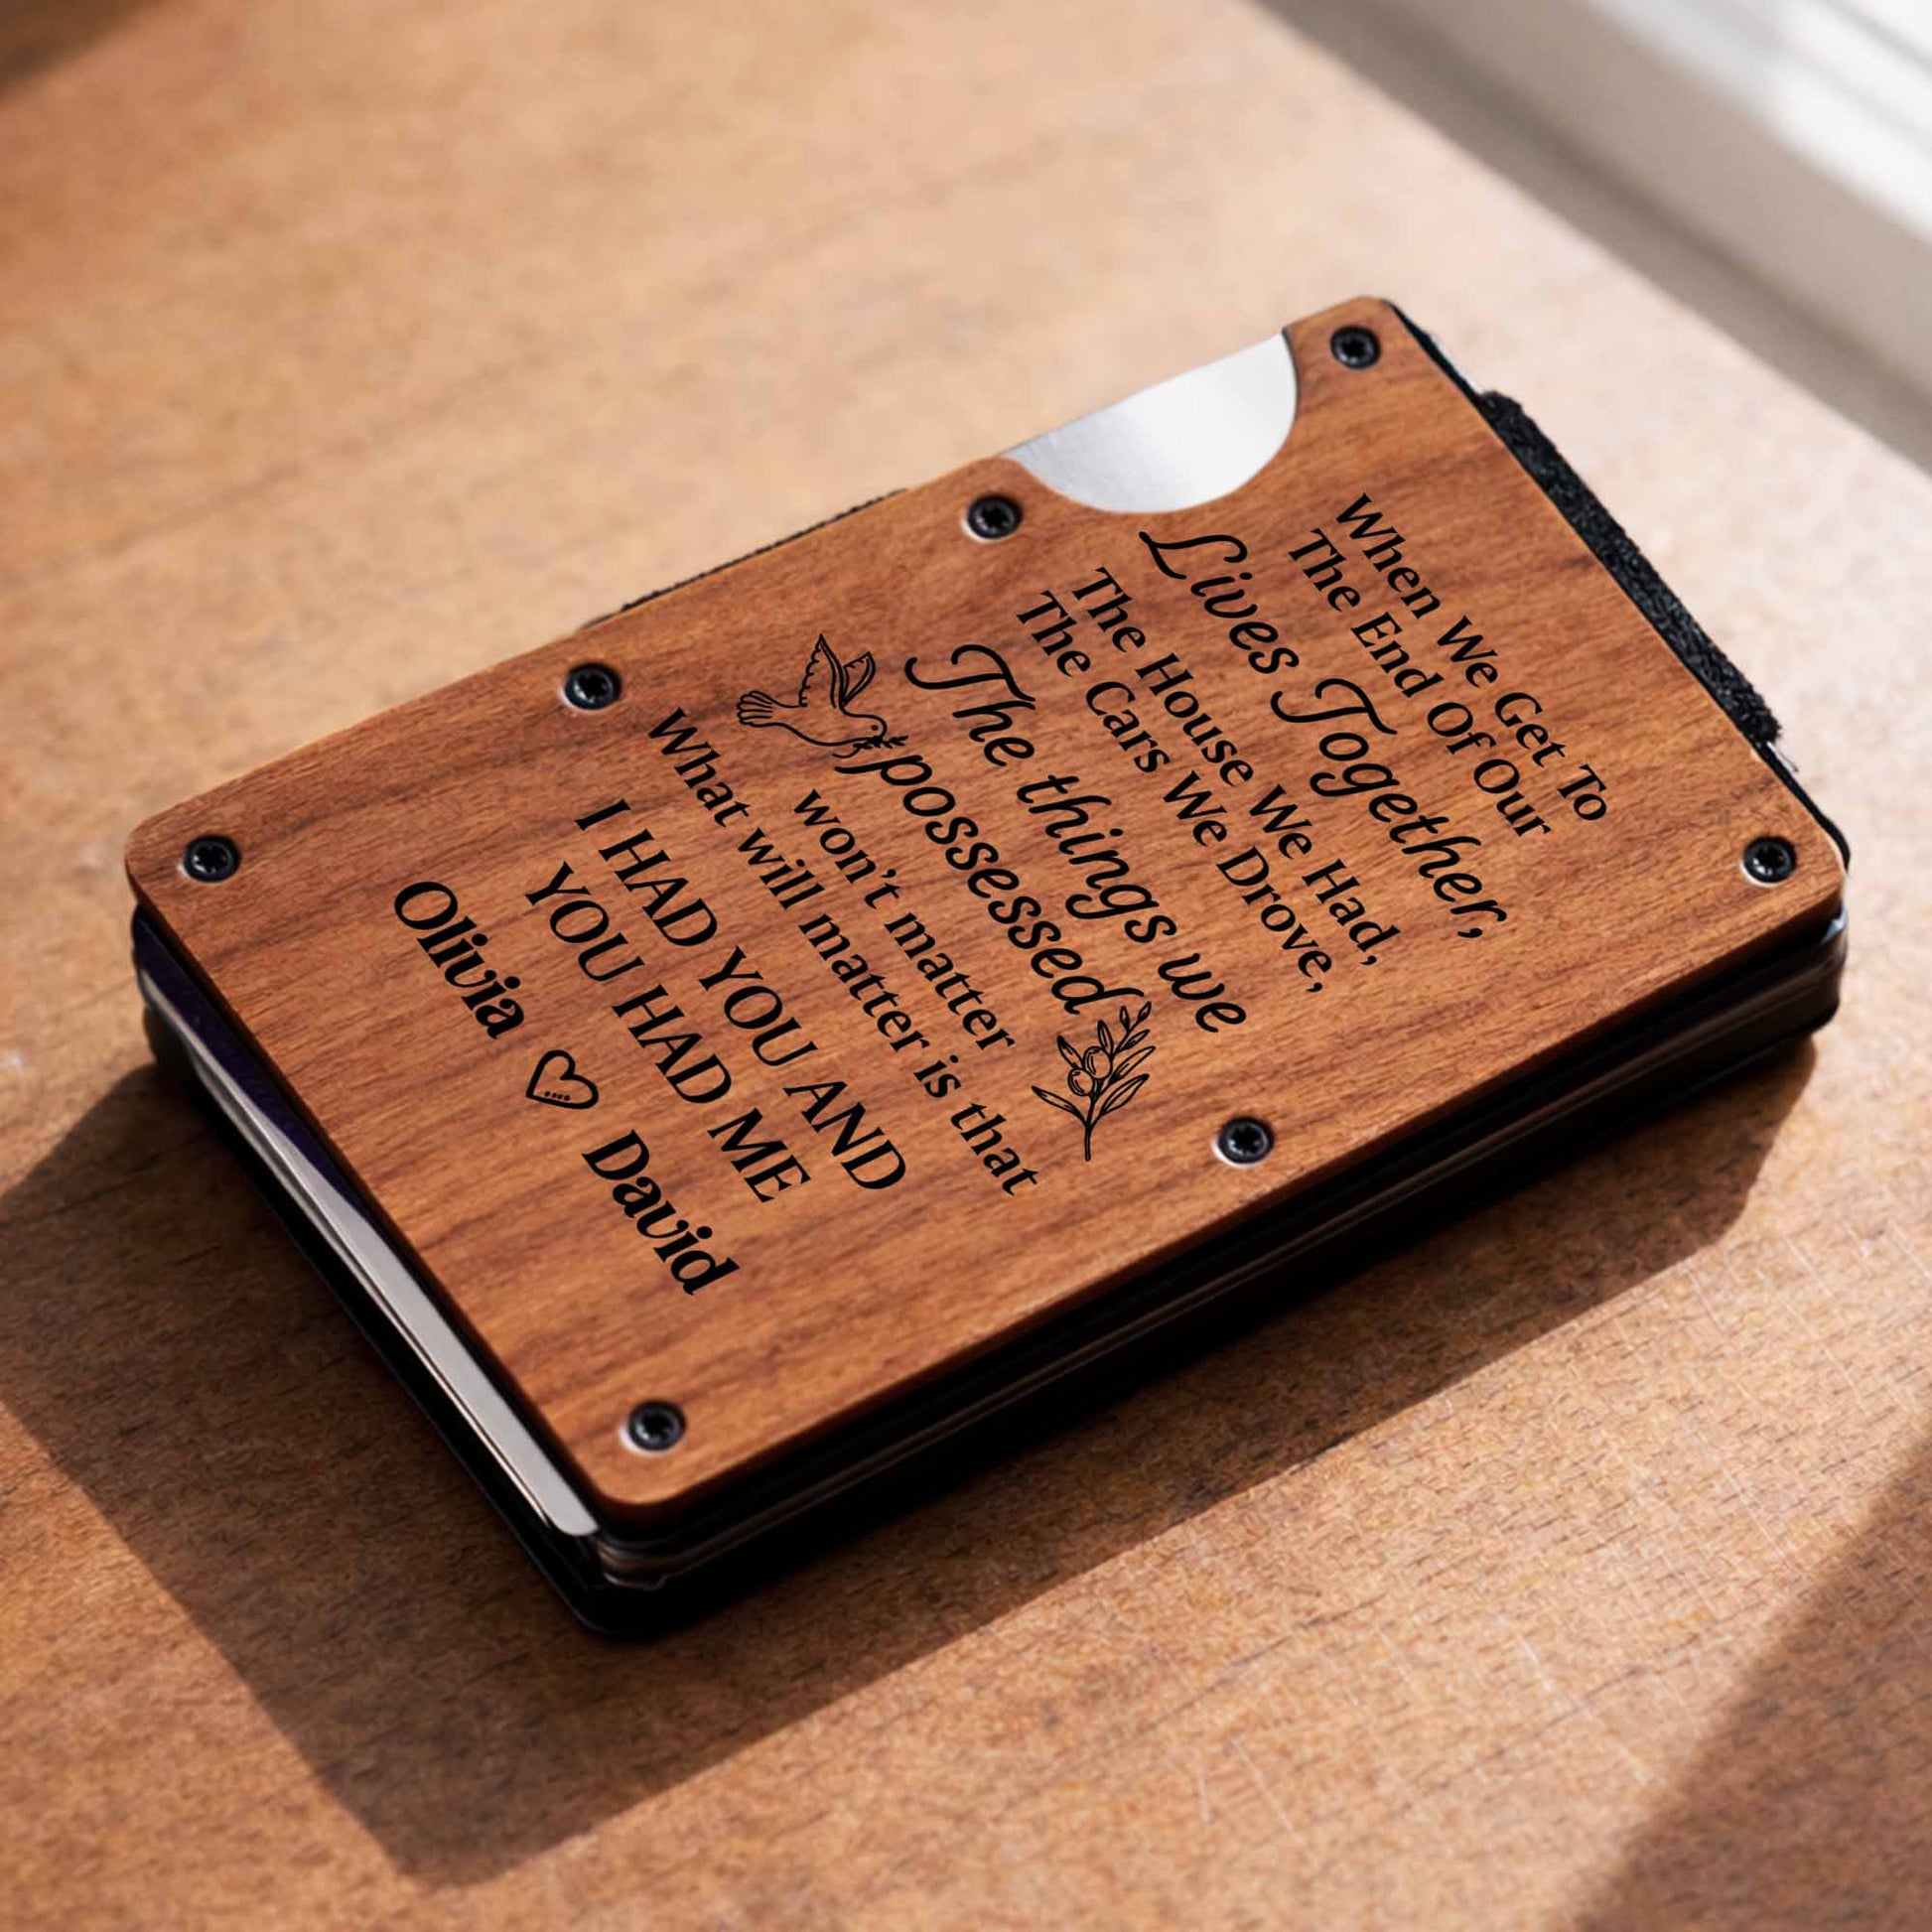 When We Get To
The End Of Our
Lives Together,
The House We Had,
The Cars We Drove,
The things we
possessed
won't matter
What will matter is that
I HAD YOU AND
YOU HAD ME
Olivia David